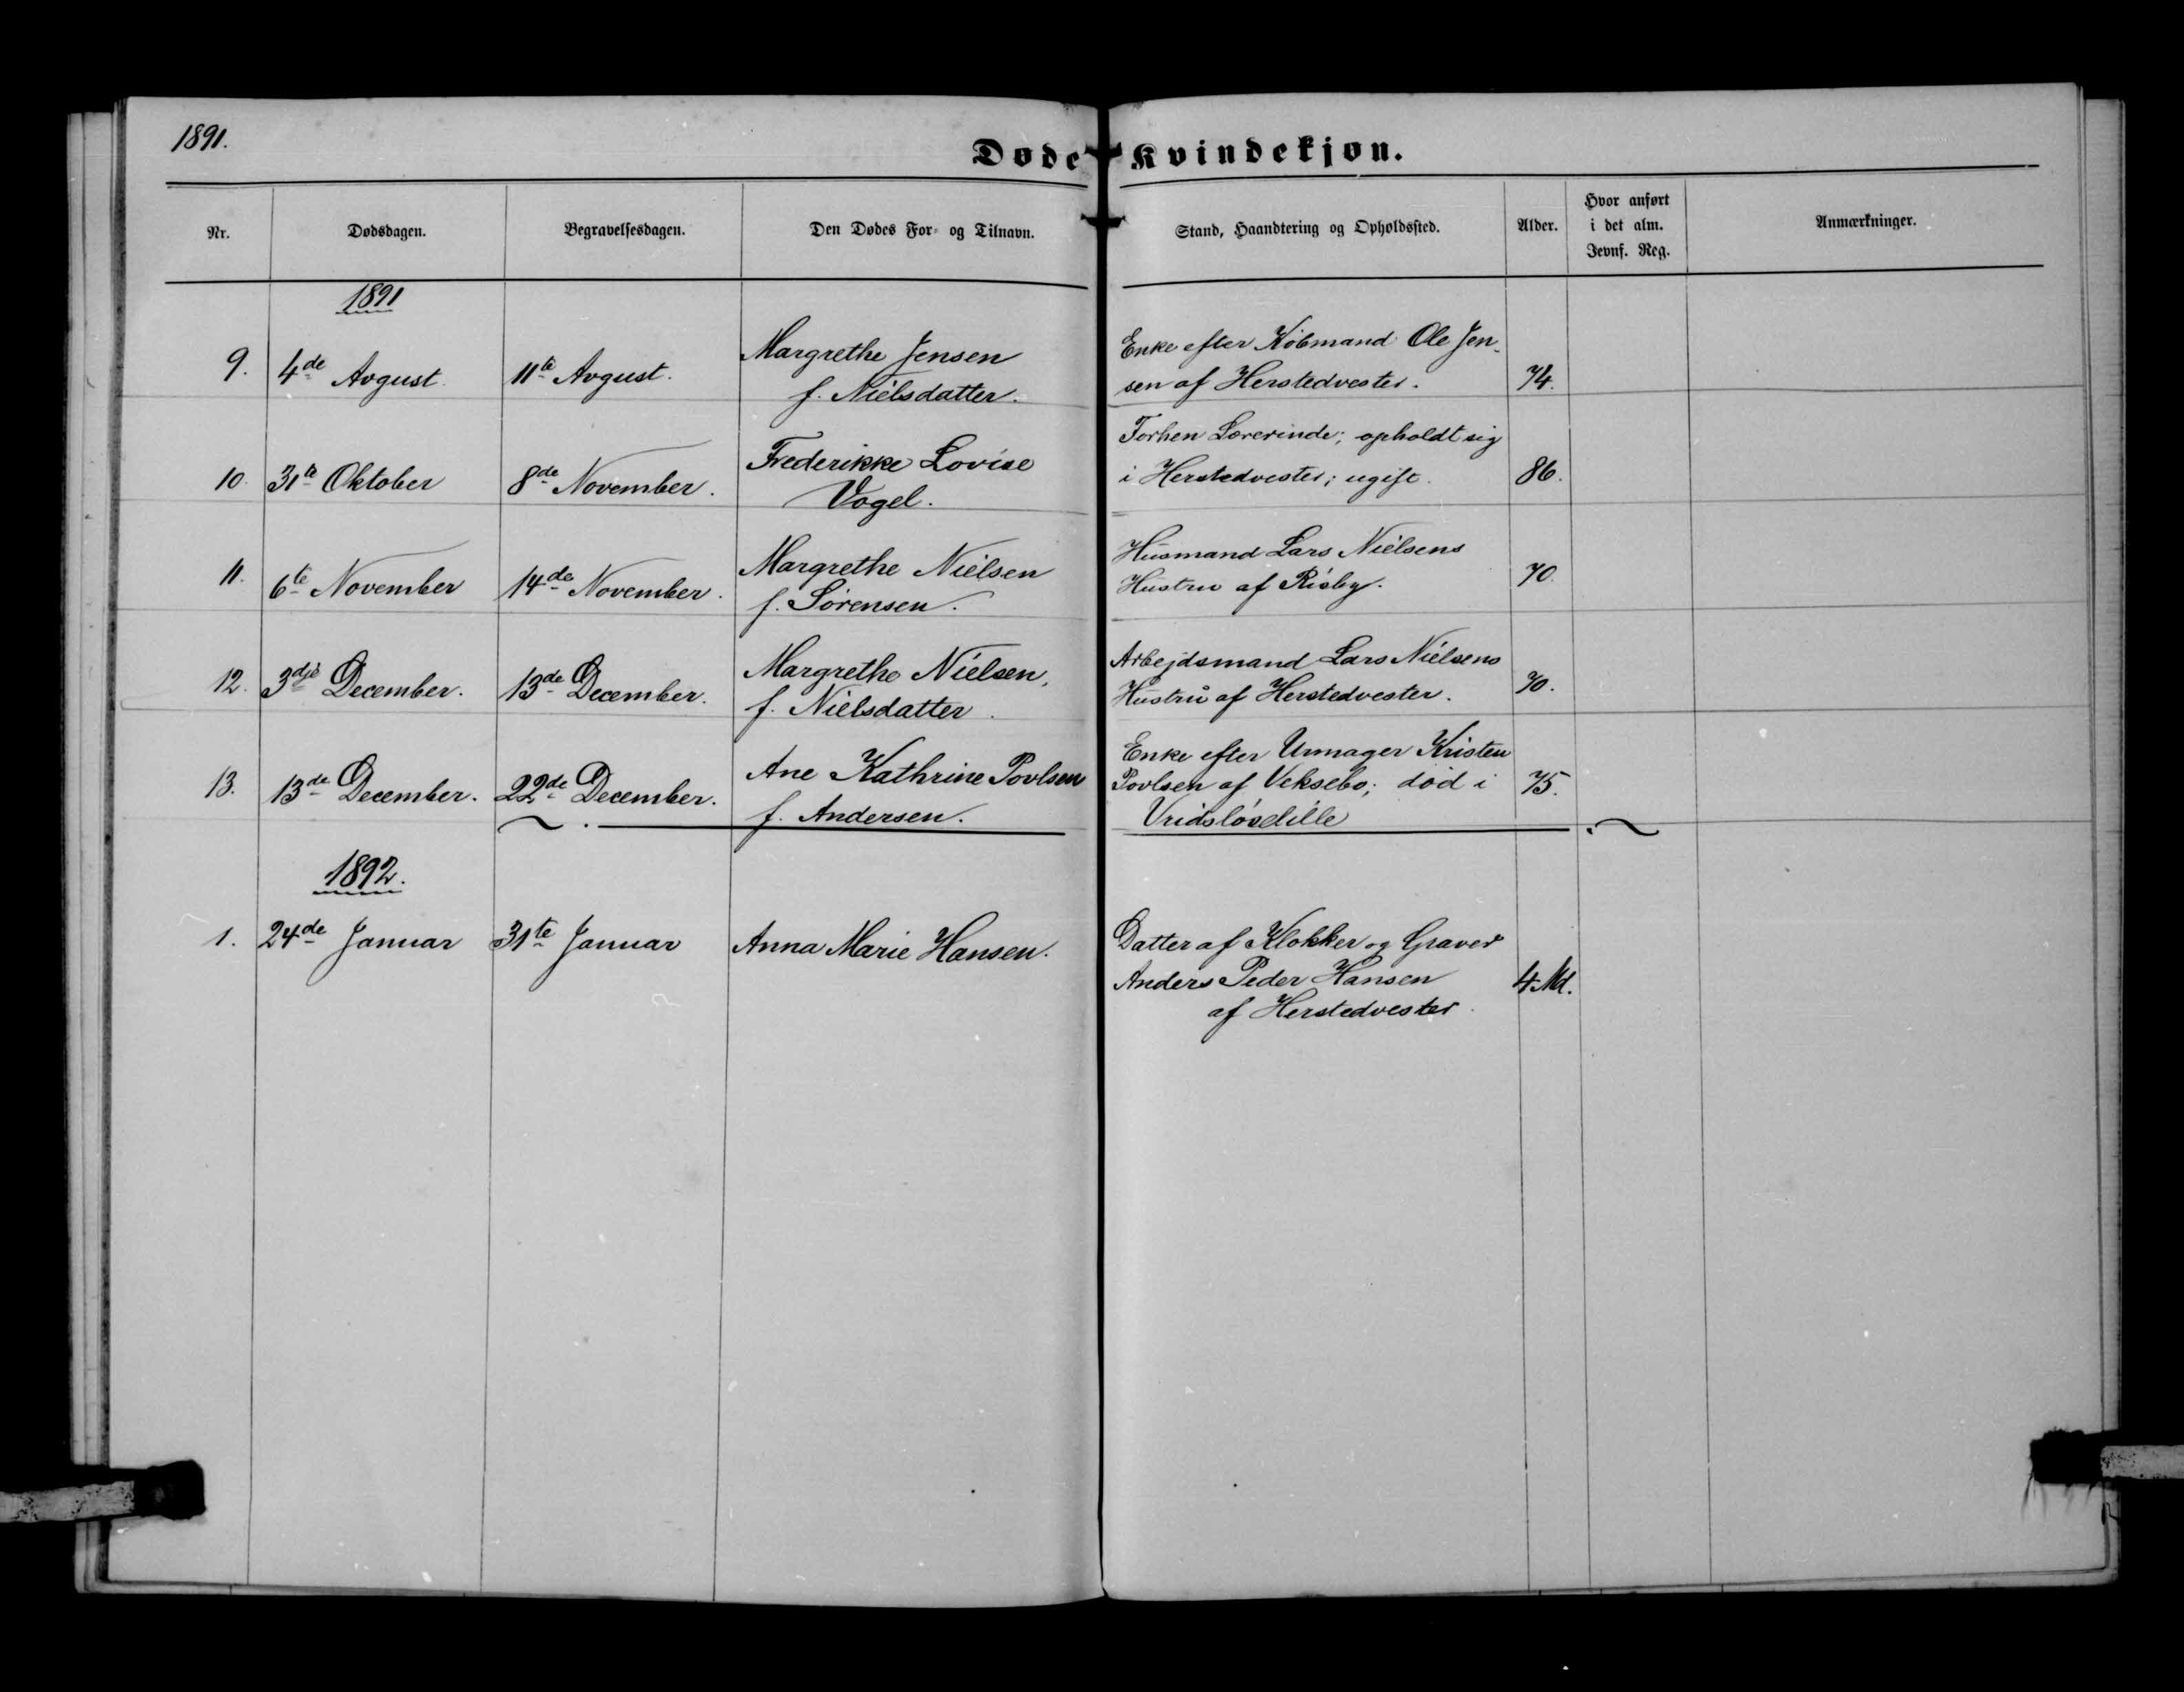 1891.
Døde Kvindekjøn.
Nr.
Dødsdagen.
Begravelsesdagen.
Den Dødes For- og Tilnavn.
Stand, Haandtering og Opholdssted.
Alder.
Hvor anført
i det alm.
Jevnf. Reg.
Anmærkninger.
1891
9. 4de Avgust. 11te Avgust. Margrethe Jensen
f. Nielsdatter.
Enke efter Købmand Ole Jen-
sen af Herstedvester. 74.
10. 31te Oktober 8de November. Frederikke Lovise
Vogel.
Forhen Lærerinde; opholdt sig
i Herstedvester; ugift. 86.
11. 6te November 14de November. Margrethe Nielsen
f. Sørensen.
Husmand Lars Nielsens
Hustru af Risby. 70.
12. 3dje December. 13de December. Margrethe Nielsen,
f. Nielsdatter.
Arbejdsmand Lars Nielsens
Hustru af Herstedvester. 70.
13. 13de December. 22de December. Ane Kathrine Povlsen
f. Andersen.
Enke efter Urmager Kristen
Povlsen af Veksebo; død i 75.
Vridsløselille
1892.
1. 24de Januar 31te Januar Anna Marie Hansen.
Datter af Klokker og Graver
Anders Peder Hansen 4 Md.
af Herstedvester.